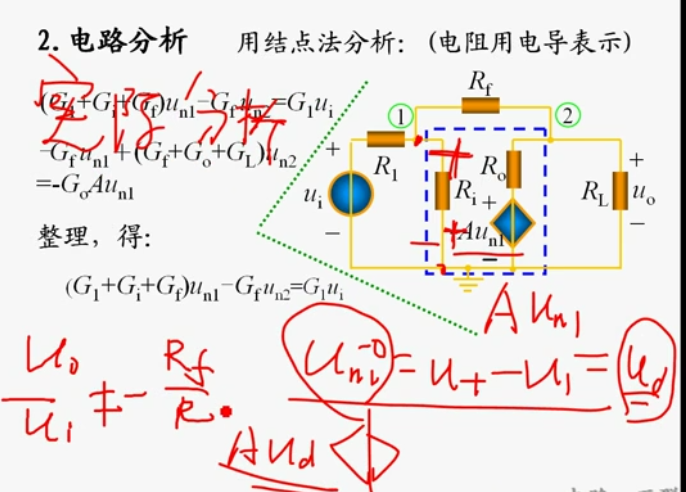 2. 电路分析 用结点法分析: (电阻用电导表示)
(G₁+Gᵢ+G_f)u_n1-G_f u_n2=G₁uᵢ
-G_f u_n1+(G_f+Gₒ+G_L)u_n2
=-GₒAu_n1
整理，得:
(G₁+Gᵢ+G_f)u_n1-G_f u_n2=G₁uᵢ
R_f
① ②
R₁ Rₒ
+ +
uᵢ Rᵢ + R_L uₒ
Au_n1
- - -
A u_n1
= u₊ - u₁ = u_d
uₒ/uᵢ ≠ - R_f/R
A u_d